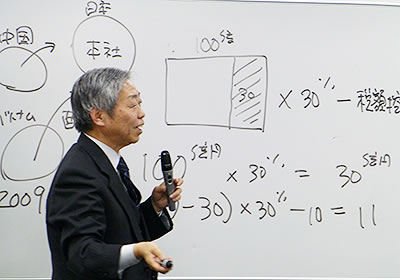 日本
本社
中国
ベトナム
2009
100億
30
× 30% － 税額控
100億円 × 30% = 30億円
－30) × 30% －10 = 11